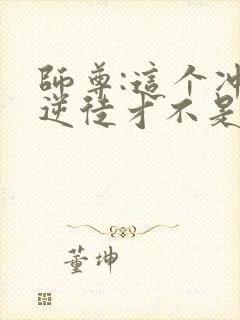 師尊:這个冲
逆徒才不是
董坤